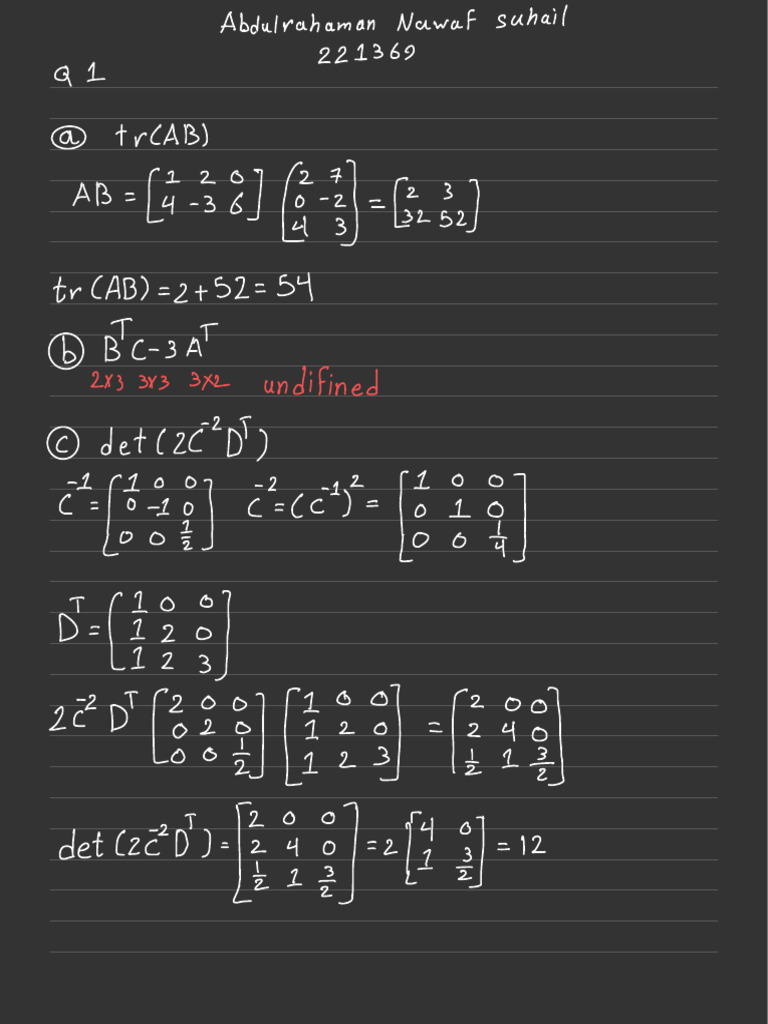 Abdulrahaman Nawaf suhail
221369
Q 1
ⓐ tr(AB)
AB = [1 2 0; 4 -3 6] [2 7; 0 -2; 4 3] = [2 3; 32 52]
tr(AB) = 2 + 52 = 54
ⓑ BᵀC - 3Aᵀ
2x3 3x3 3x2 undifined
ⓒ det(2C⁻²Dᵀ)
C⁻¹ = [1 0 0; 0 -1 0; 0 0 1/2] C⁻² = (C⁻¹)² = [1 0 0; 0 1 0; 0 0 1/4]
Dᵀ = [1 0 0; 1 2 0; 1 2 3]
2C⁻² Dᵀ [2 0 0; 0 2 0; 0 0 1/2] [1 0 0; 1 2 0; 1 2 3] = [2 0 0; 2 4 0; 1/2 1 3/2]
det(2C⁻²Dᵀ) = [2 0 0; 2 4 0; 1/2 1 3/2] = 2 [4 0; 1 3/2] = 12